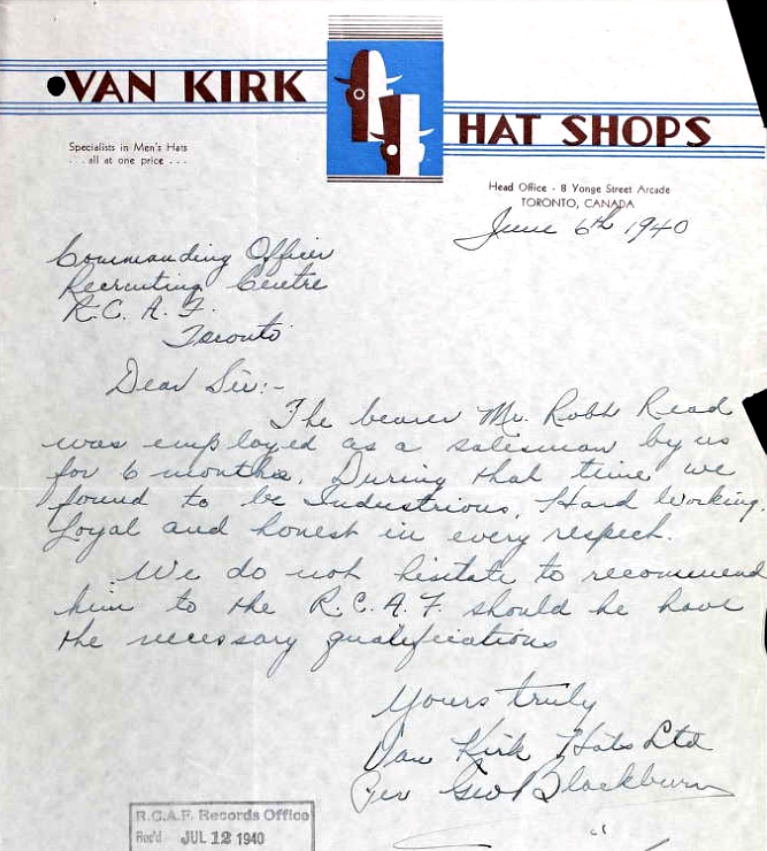 VAN KIRK
HAT SHOPS
Specialists in Men's Hats
. . . all at one price . . .
Head Office - 8 Yonge Street Arcade
TORONTO, CANADA
June 6th 1940
Commanding Officer
Recruiting Centre
R.C.A.F.
Toronto
Dear Sir:-
The bearer Mr. Robt Read
was employed as a salesman by us
for 6 months. During that time we
found to be Industrious, Hard Working,
Loyal and honest in every respect.
We do not hesitate to recommend
him to the R.C.A.F. should he have
the necessary qualifications
Yours truly
Van Kirk Hats Ltd
Per Geo Blackburn
R.C.A.F. Records Office
Rec'd JUL 12 1940